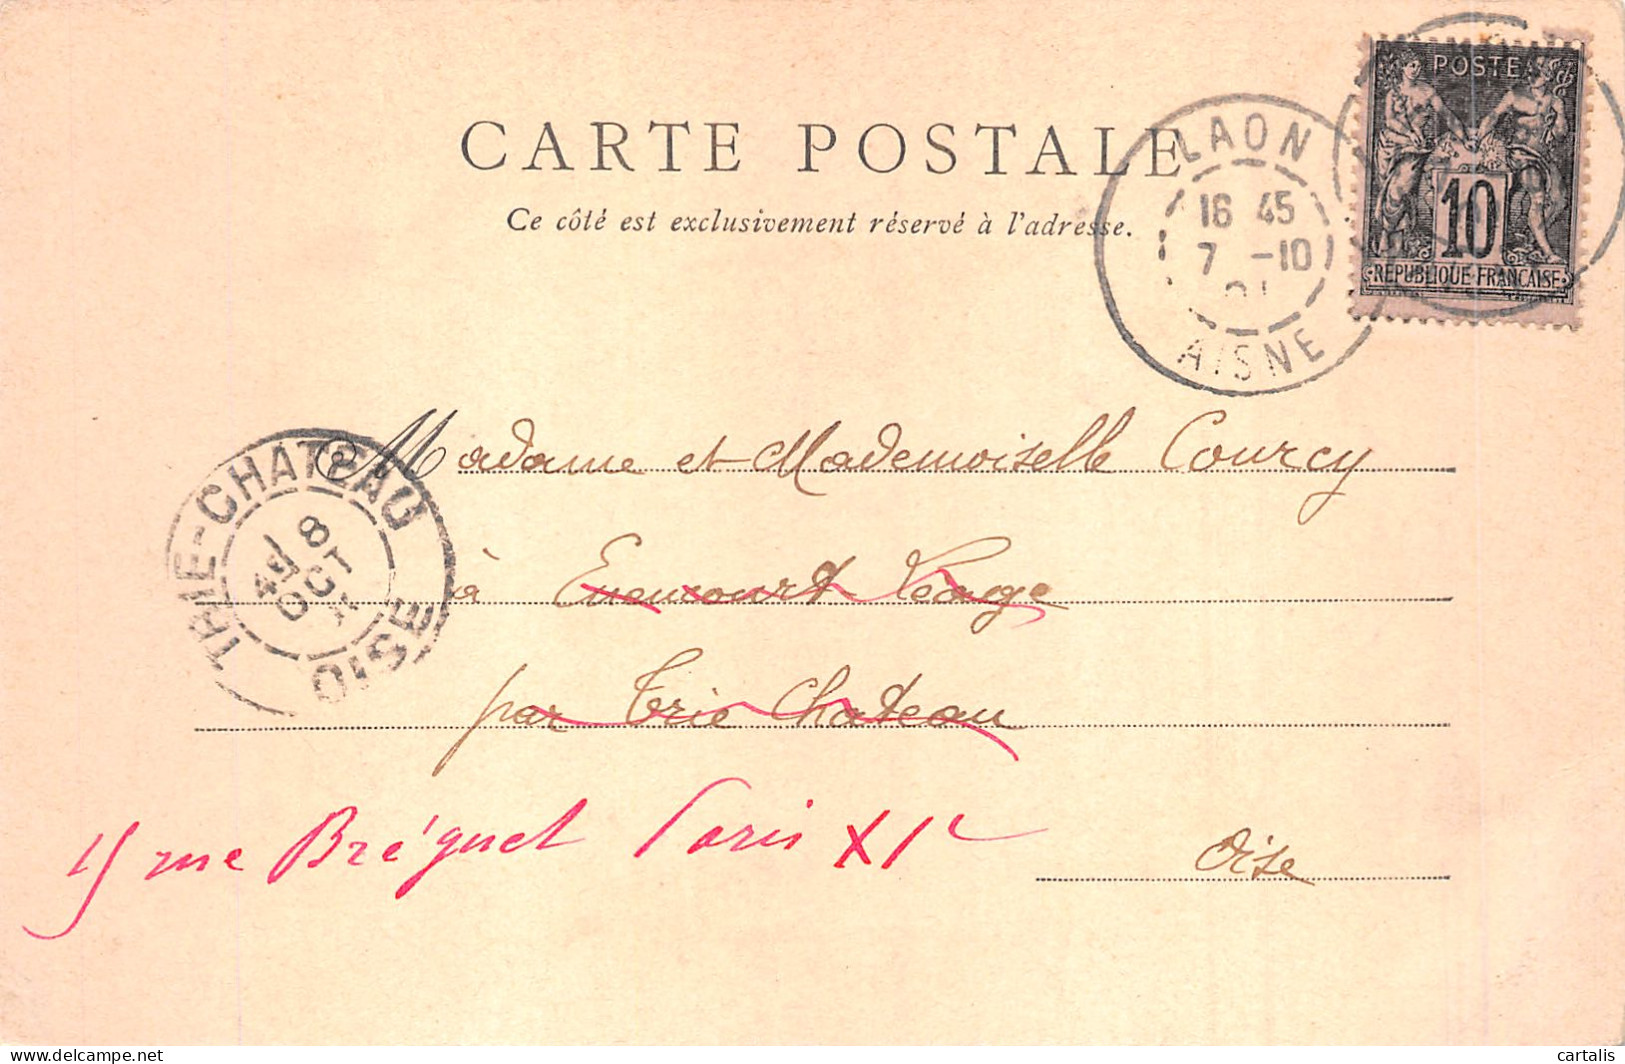 CARTE POSTALE
Ce côté est exclusivement réservé à l'adresse.
POSTE
10
REPUBLIQUE FRANCAISE
LAON
16 45
7 -10
01
AISNE
TRIE-CHATEAU
8
OCT
OISE
Madame et Mademoiselle Courcy
à Enencourt Léage
par Trie Chateau
15 rue Bréguet Paris XIe
Oise
delcampe.net
cartalis